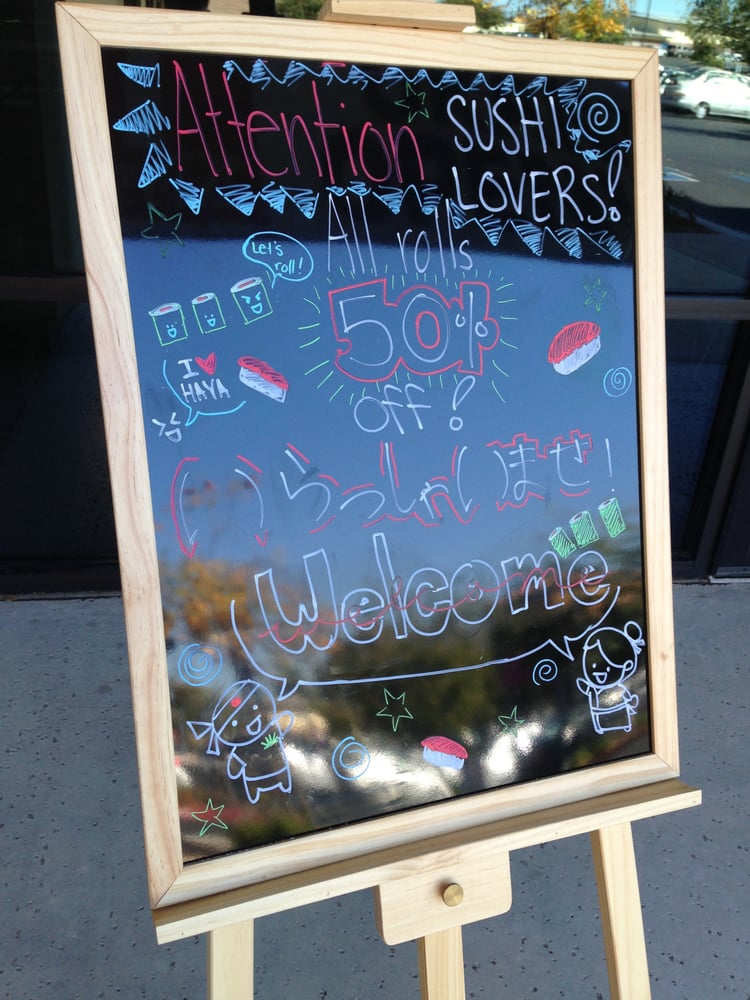 Attention SUSHI
LOVERS!
All rolls
Let's
roll!
50%
off!
I ♥
HAYA
いらっしゃいませ!
Welcome
welcome